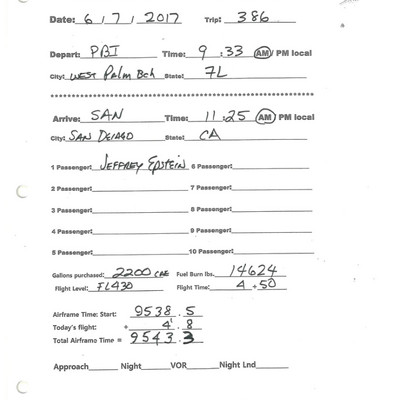 Date: 6 / 7 / 2017 Trip: 386
Depart: PBI Time: 9 : 33 AM / PM local
City: WEST Palm Bch State: FL
Arrive: SAN Time: 11 : 25 AM / PM local
City: SAN DEIAGO State: CA
1 Passenger: JEFFREY EPSTEIN 6 Passenger:
2 Passenger: 7 Passenger:
3 Passenger: 8 Passenger:
4 Passenger: 9 Passenger:
5 Passenger: 10 Passenger:
Gallons purchased: 2200 Fuel Burn lbs. 14624
Flight Level: FL430 Flight Time: 4 + 50
Airframe Time: Start: 9538 . 5
Today's flight: + 4 . 8
Total Airframe Time = 9543 . 3
Approach Night VOR Night Lnd